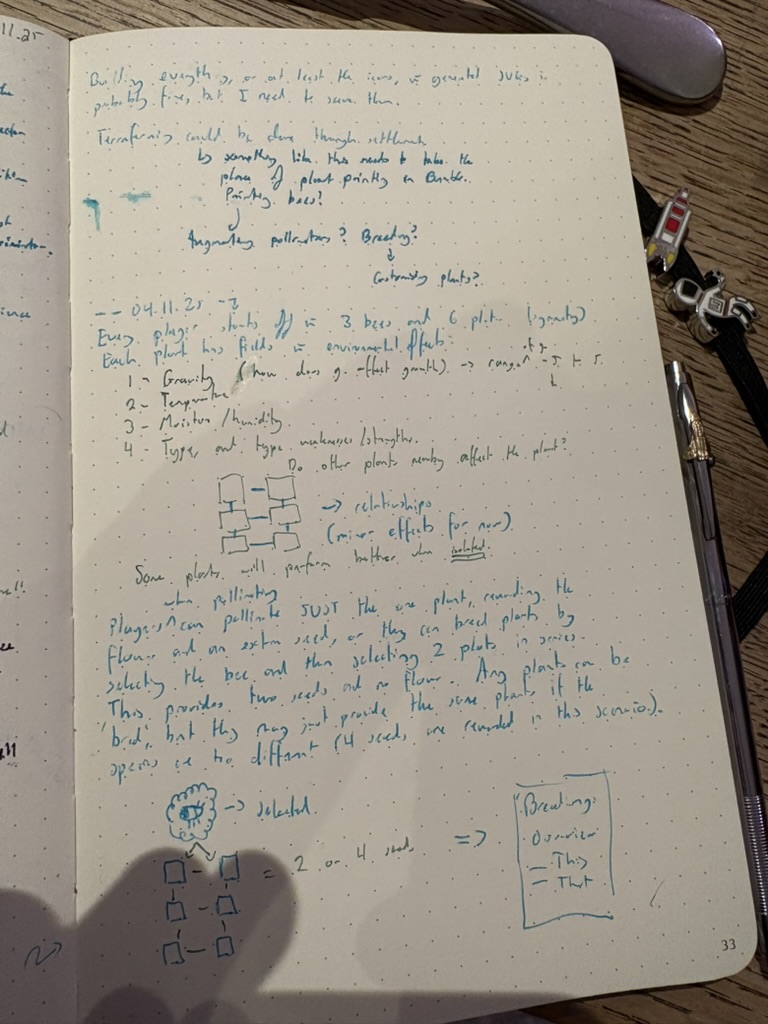 11.25
Building everything, or at least the icons, in general sizes is
probably fine, but I need to see them.
Terraforming could be done through settlements
but something like this needs to take the
place of plant printing on
Printing bees?
Augmenting pollinators? Breeding?
Customising plants?
-- 04.11.25 --
Every player starts off w 3 bees and 6 plots (symmetry)
Each plant has fields w environmental effects:
1 - Gravity (how does g. affect growth) -> range of g -5 to 5.
2 - Temperature
3 - Moisture/humidity.
4 - Types and type weaknesses/strengths.
Do other plants nearby affect the plant?
-> relationships
(minor effects for now)
Some plants will perform better when isolated.
when pollinating
Players ^ can pollinate JUST the one plant, rewarding the
flower and an extra seed, or they can breed plants by
selecting the bee and then selecting 2 plots in series.
This provides two seeds and no flower. Any plants can be
'bred', but they may just provide the same plants if the
species are too different (4 seeds are rewarded in this scenario).
-> selected
= 2 or 4 seeds
=>
Breeding:
Overview
- This
- That
33